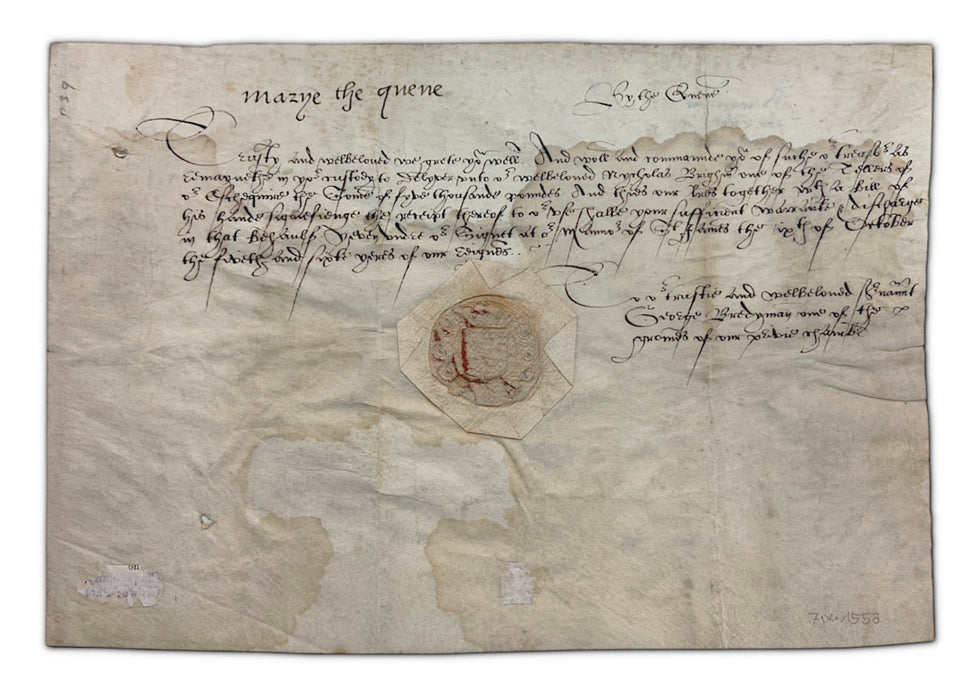 Marye the quene
By the Quene
Trusty and welbeloved we grete yor well. And woll and commaunde yor of suche or treasor as
remayneth in yor custody to delyver unto or welbeloved Nycholas Brigham one of the Tellers of
or Eschequier the Some of fyve thousande poundes And thies our lres together with a Bill of
his hande signefienge the receipt thereof to or use shalbe your sufficient warrante & discharge
in that behaulf Yeven undre or Signet at or Mannor of St James the ixth of October
the fiveth and sixte yeres of our Reignes.
To or trustie and welbeloved
George Bredyman one of the
gromes of our privie chambre
039
on
7.X.1558